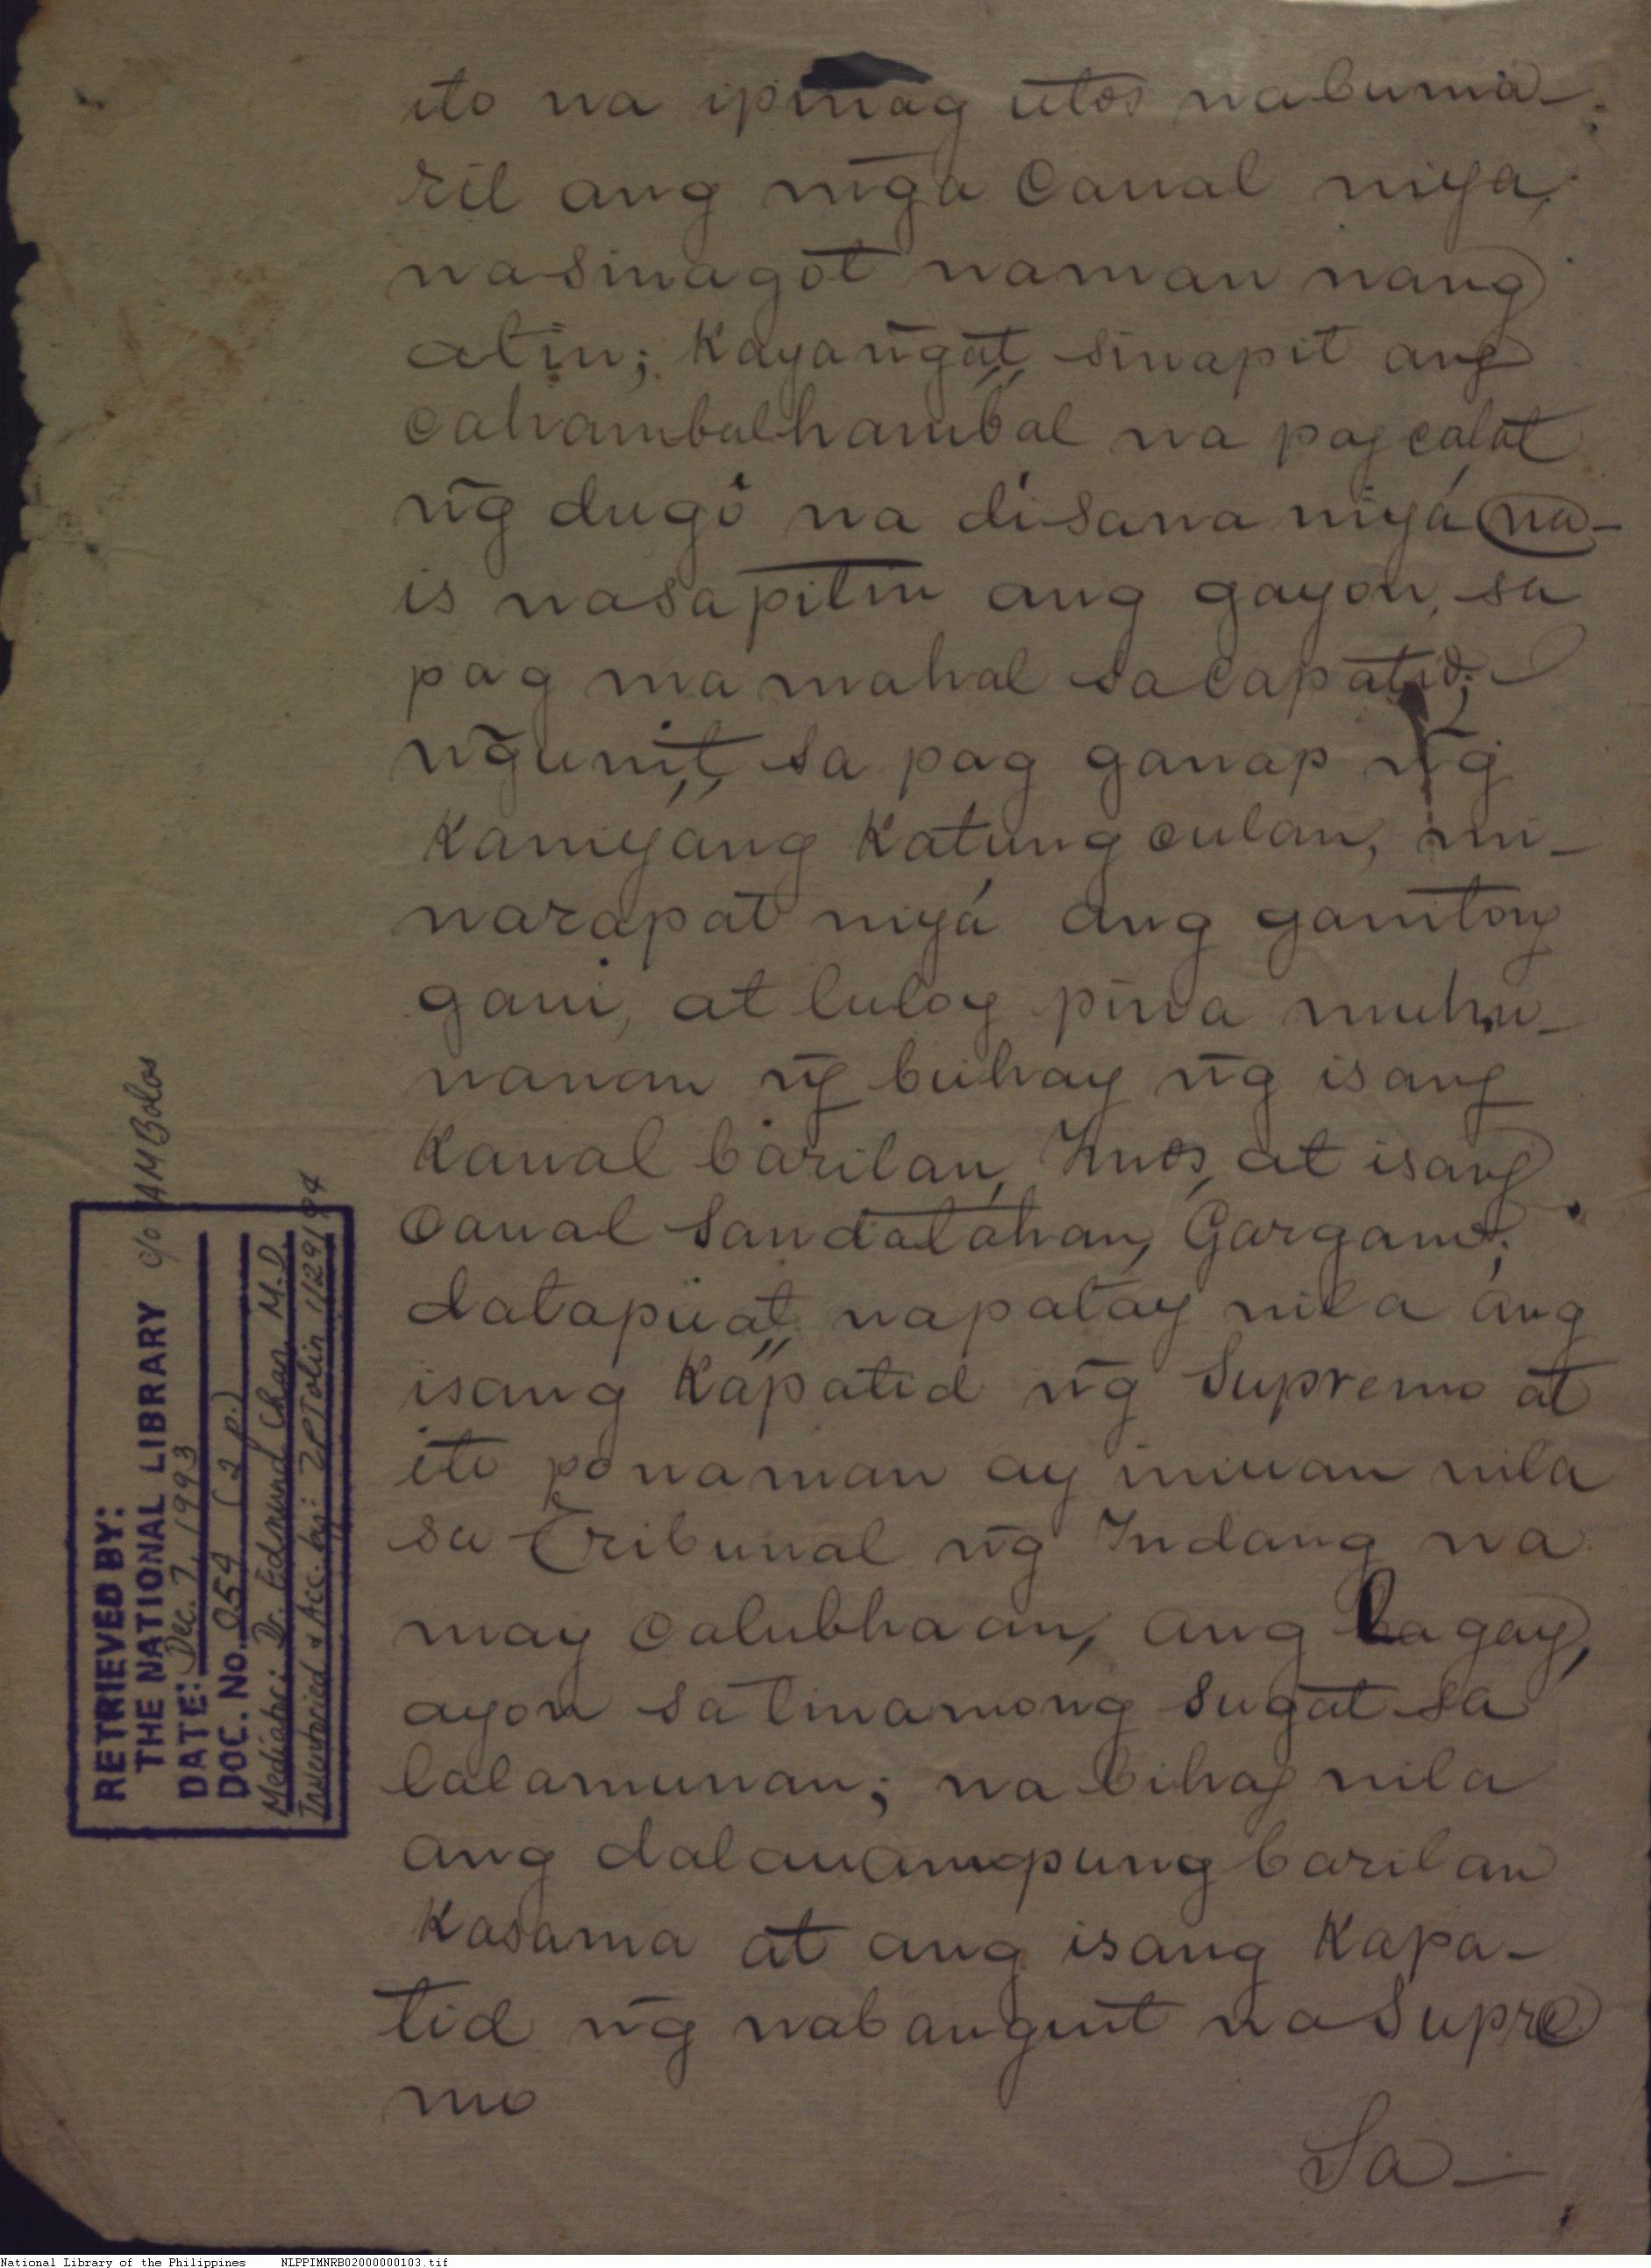 ito na ipinag utos na buma-
ril ang m̃ga Caual niya,
na sinagot naman nang
atin; Kayañgat, sinapit ang
cahambalhambal na pag calat
n̄g dugô na di sana niyá na-
is na sapitin ang gayon, sa
pag mamahal sa capatid;
n̄gunit, sa pag ganap n̄g
Kaniyang Katungculan, mi-
narapat niyá ang ganitong
gaui, at tuloy pina muhu-
nanan n̄g buhay n̄g isang
Kaual barilan, at isang
Caual Sandatahan,
datapuat, napatay nila ang
isang Kapatid n̄g Supremo at
ito po naman ay iniuan nila
sa Tribunal n̄g Indang na
may calubhaan, ang lagay,
ayon sa tinamong sugat sa
lalamunan; na bihag nila
ang dalauampung barilan
Kasama at ang isang Kapa-
tid n̄g nabanguit na Supre
mo
Sa-
c/o AM Bolos
RETRIEVED BY:
THE NATIONAL LIBRARY
DATE: Dec. 7, 1993
DOC. No. 054 (2 p.)
Mediator: Dr. Edmund Chan M.D.
Inventoried & Acc. by: ZPTolin 1/29/94
National Library of the Philippines NLPPIMNRB02000000103.tif